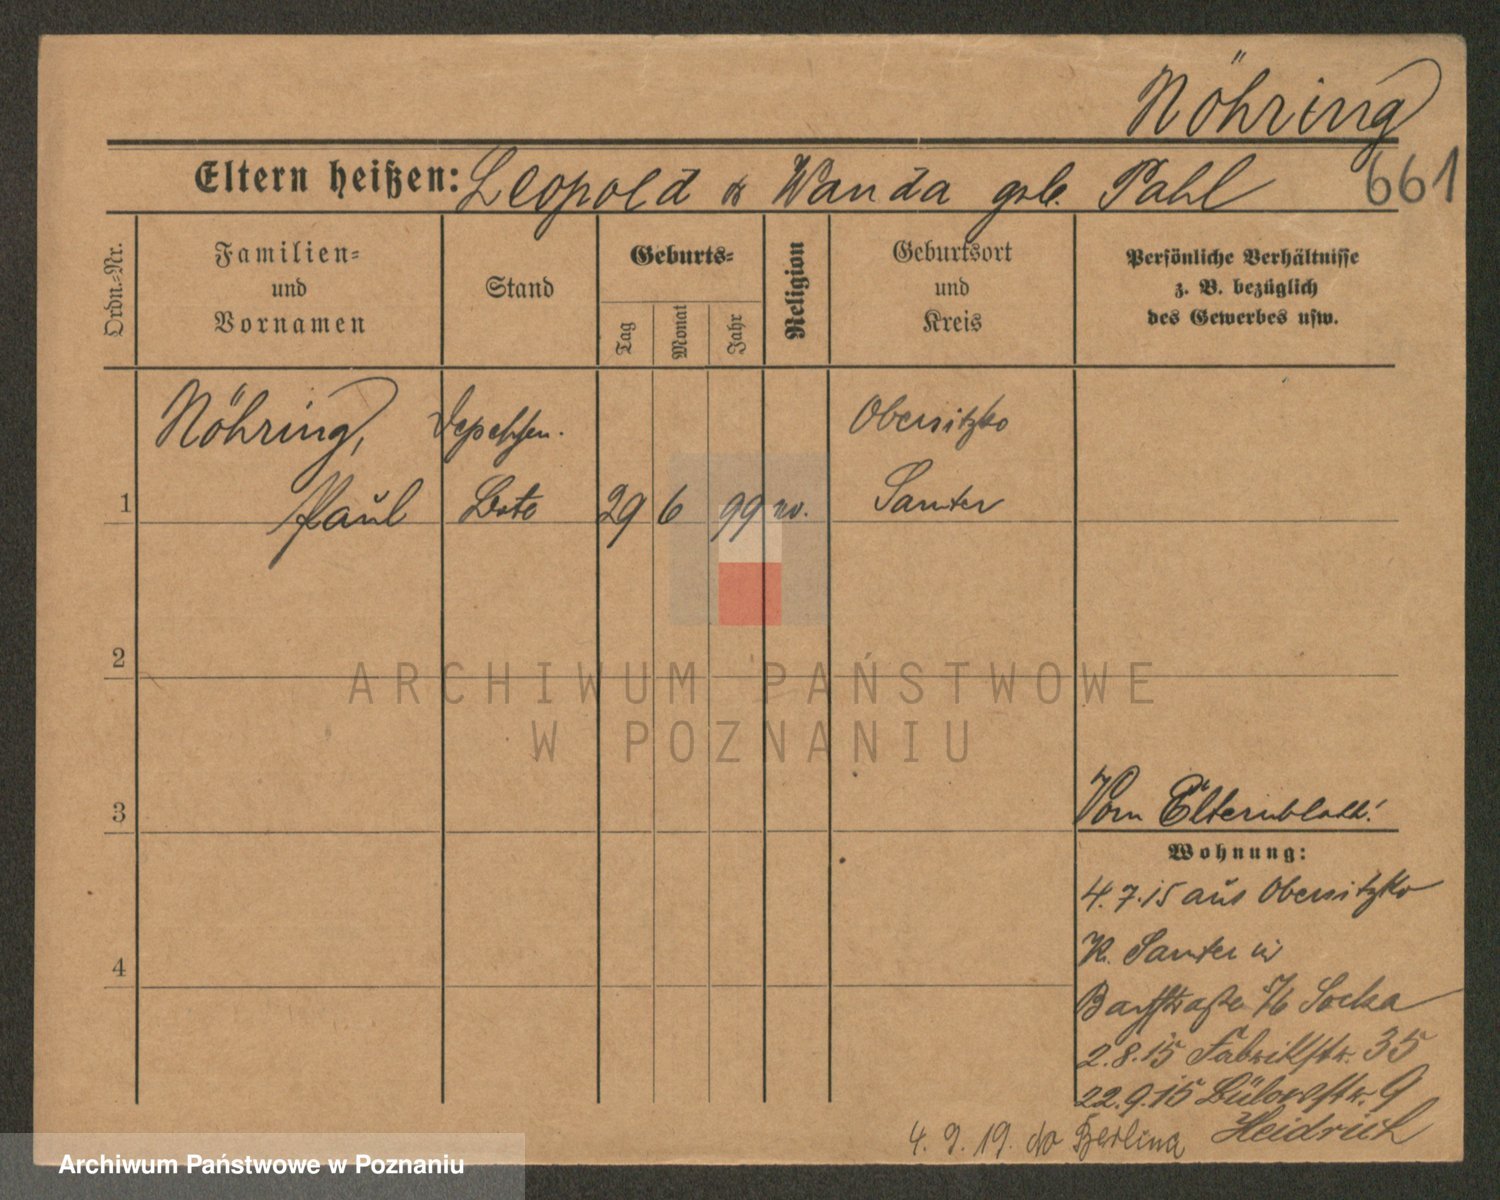 Nöhring
661
Eltern heißen: Leopold & Wanda geb. Pahl
Ordn.-Nr.
Familien-
und
Vornamen
Stand
Geburts-
Tag
Monat
Jahr
Religion
Geburtsort
und
Kreis
Persönliche Verhältnisse
z. B. bezüglich
des Gewerbes usw.
Nöhring, Depeschen- Obersitzko
1 Paul Bote 29 6 99 ev. Samter
2
3
4
Vom Elternblatt!
Wohnung:
4.7.15 aus Obersitzko
K. Samter in
5/6 Socka
2.8.15 Fabrikstr. 35
22.9.15 Bülowstr. 9
Heidrich
4. 9. 19. do Berlina
ARCHIWUM PAŃSTWOWE
W POZNANIU
Archiwum Państwowe w Poznaniu